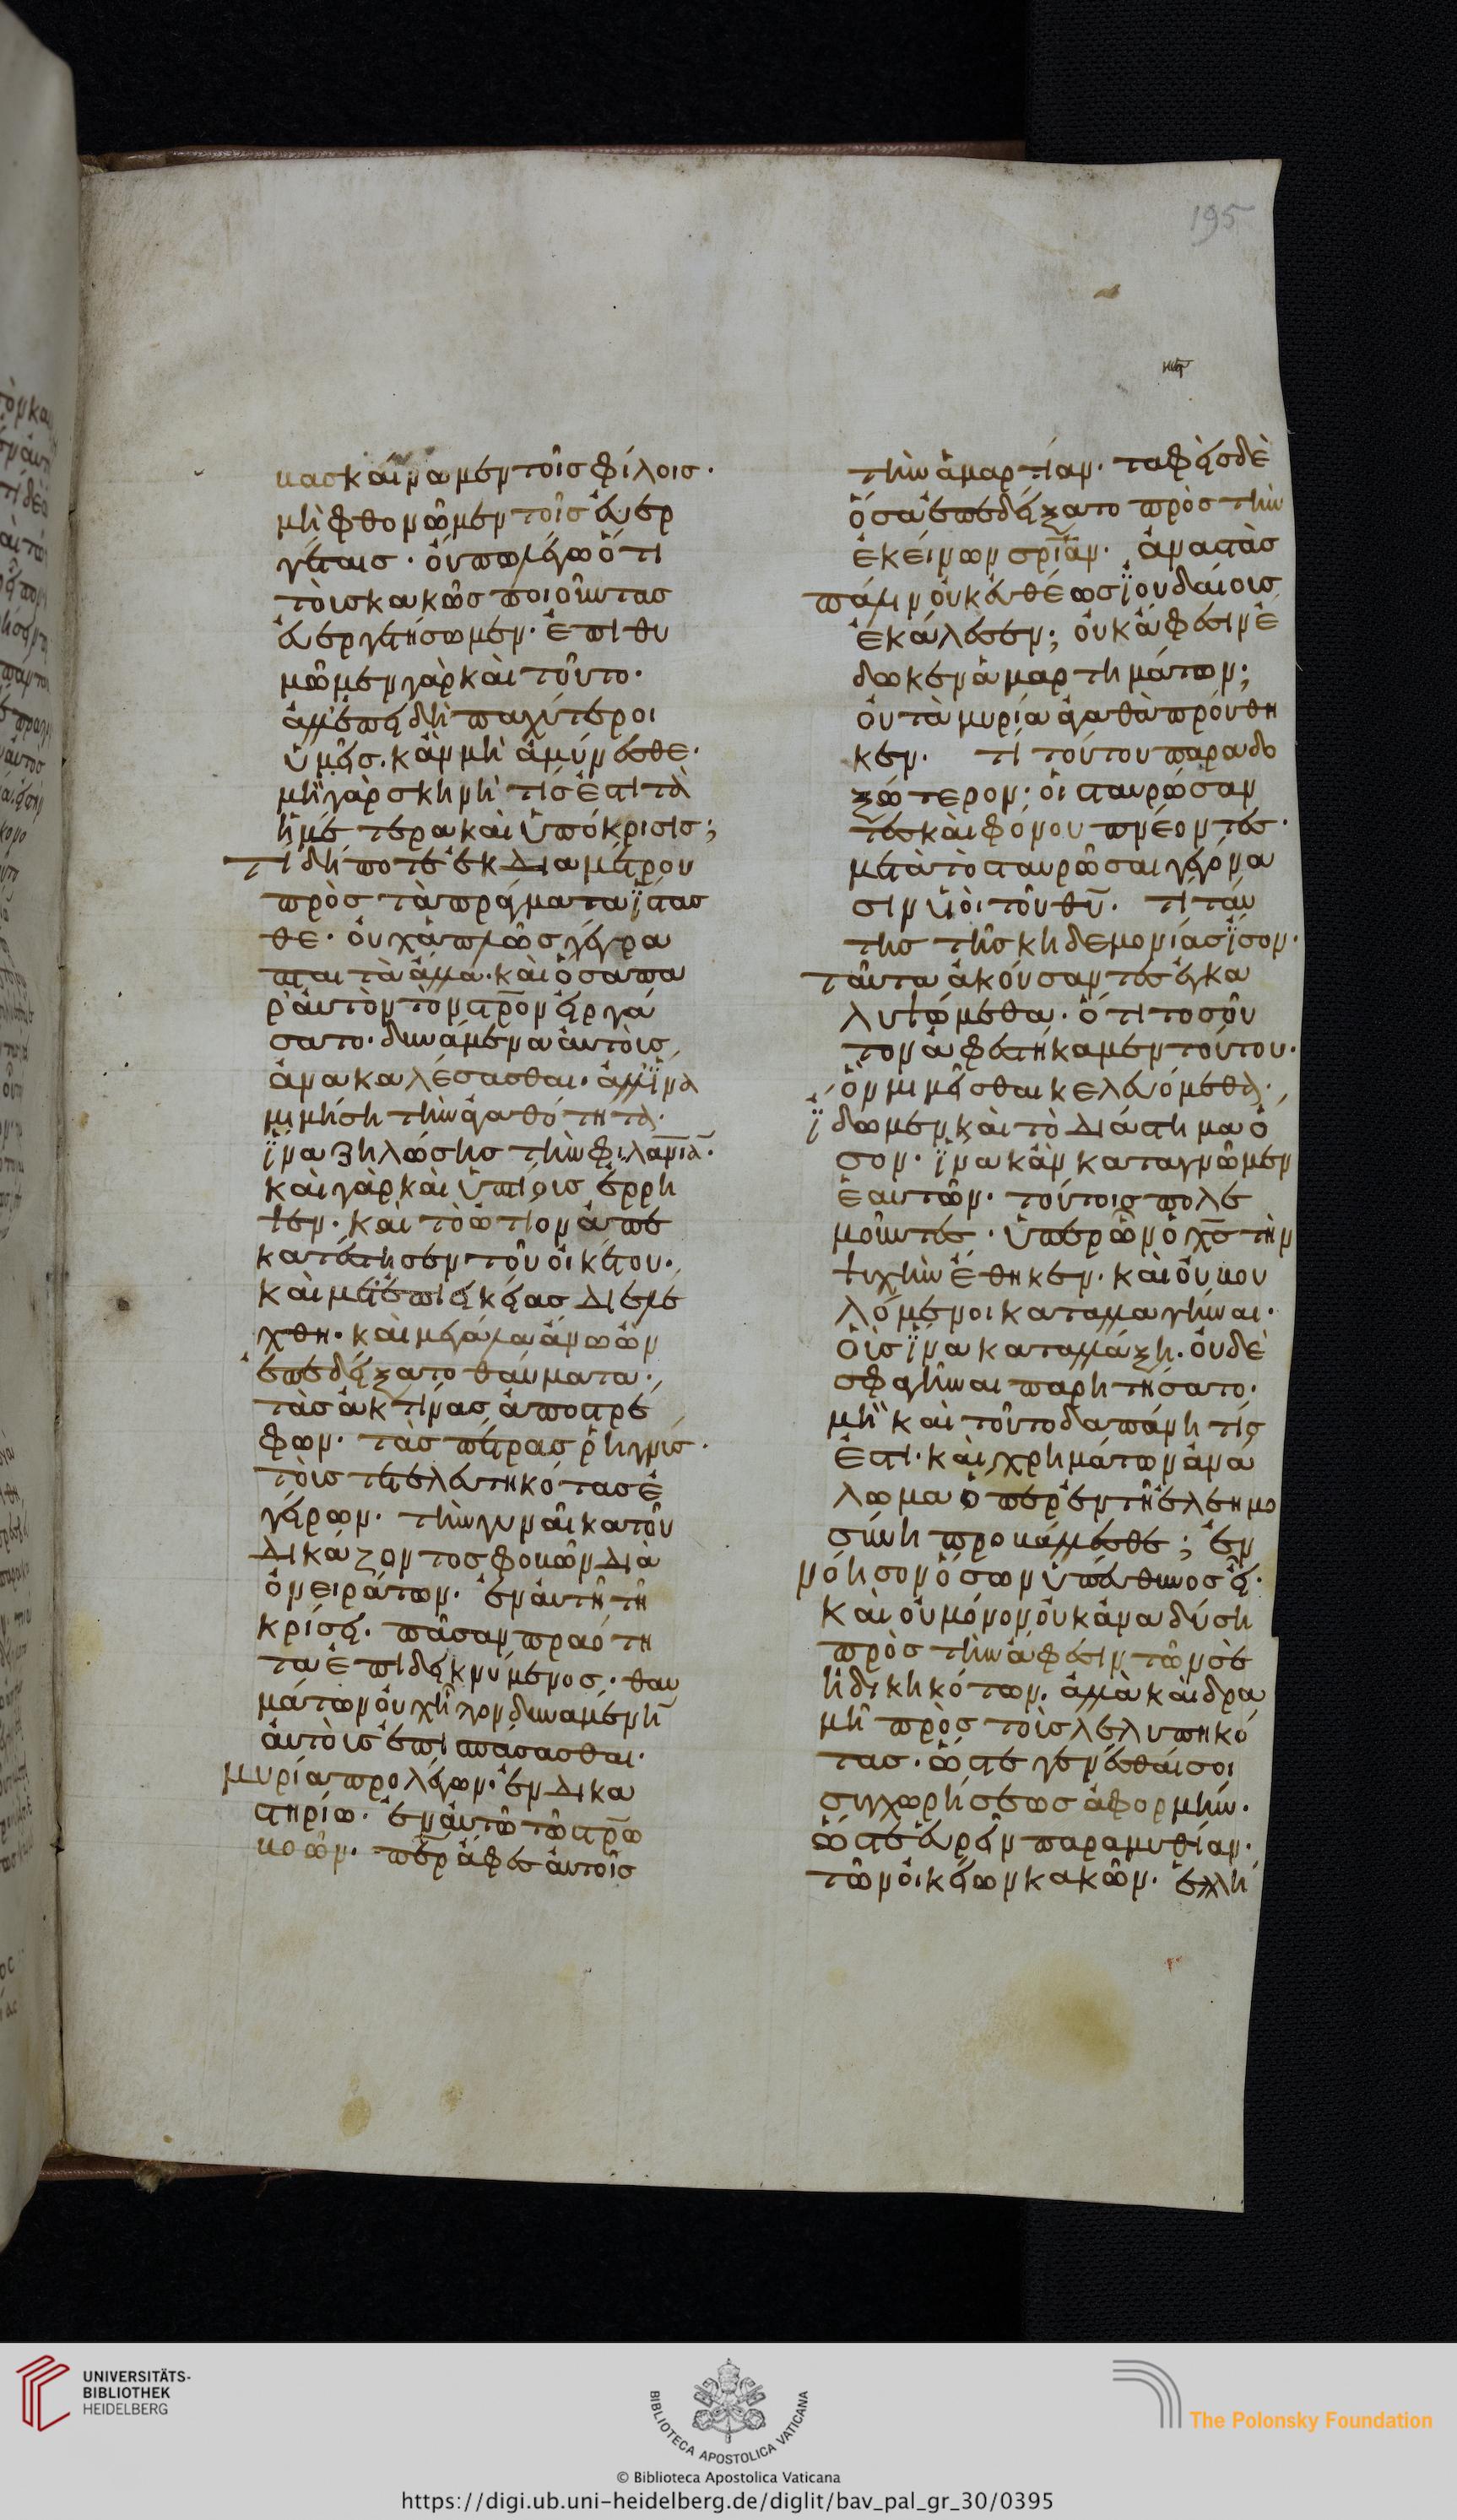 195
βασκαίνωμεν τοῖς φίλοις·
μὴ φθονῶμεν τοῖς εὐερ
γέταις· οὔπω λέγω ὅτι
τοὺς κακῶς ποιοῦντας
εὐεργετήσωμεν· ἐπιθυ
μῶμεν γὰρ καὶ τοῦτο·
ἀλλ' ἐπειδὴ παχύτεροι
ὑμεῖς· κἂν μὴ ἀμύνεσθε·
μὴ γὰρ σκηνή τίς ἐστι τὰ
ἡμέτερα καὶ ὑπόκρισις;
τί δήποτε ἐκ διαμέτρου
πρὸς τὰ πράγματα ἵστασ
θε· οὐχ ἁπλῶς γέγρα
πται τὰ ἄλλα· καὶ ὅσα πα
ρ' αὐτὸν τὸν στρον εἰργά
σατο· δυνάμενα αὐτοὺς
ἀνακαλέσασθαι· ἀλλ' ἵνα
μιμήσῃ τὴν ἀγαθότητα·
ἵνα ζηλώσῃς τὴν φιλανιαν·
καὶ γὰρ καὶ ὑπτίους ἔρρι
ψεν· καὶ τὸ ὠτίον ἀπε
κατέστησεν τοῦ οἰκέτου·
καὶ μετ' ἐπιεικείας διελέ
χθη· καὶ μεγάλα ἄνω ὢν
ἐπεδείξατο θαύματα·
τὰς ἀκτῖνας ἀποστρέ
φων· τὰς πέτρας ῥηγνύς·
τοὺς τετελευτηκότας ἐ
γείρων· τὴν γυναῖκα τοῦ
δικάζοντος φοβῶν διὰ
ὀνειράτων· ἐν αὐτῇ τῇ
κρίσει· πᾶσαν πραότη
τα ἐπιδεικνύμενος· θαυ
μάτων οὐχ ἧττον δυναμένη
αὐτοὺς ἐπισπάσασθαι·
μυρία προλέγων· ἐν δικα
στηρίω· ἐν αὐτῶ τῶ στρω
βοῶν· περ ἄφες αὐτοῖς
τὴν ἁμαρτίαν· ταφεὶς δὲ
ὅσα ἐπεδείξατο πρὸς τὴν
ἐκείνων σριαν· ἀναστὰς
πάλιν οὐκ εὐθέως ἰουδαίους
ἐκάλεσεν; οὐκ ἄφεσιν ἔ
δωκεν ἁμαρτημάτων;
οὐ τὰ μυρία ἀγαθὰ προὔθη
κεν· τί τούτου παραδο
ξότερον· οἱ σταυρώσαν
τες καὶ φόνου πνέοντες·
μετὰ τὸ σταυρῶσαι γεγόνα
σιν υἱοὶ τοῦ θυ· τί ταύ
της τῆς κηδεμονίας ἴσον·
ταῦτα ἀκούσαντες ἐγκα
λυψώμεθα· ὅτι τοσοῦ
τον ἀφεστήκαμεν τούτου·
ὃν μιμεῖσθαι κελευόμεθα·
ἴδωμεν καὶ τὸ διάστημα ὅ
σον· ἵνα κἂν καταγνῶμεν
ἑαυτῶν· τούτοις πολε
μοῦντες· ὑπὲρ ὧν ὁ χς τὴν
ψυχὴν ἔθηκεν· καὶ οὐ βου
λόμενοι καταλλαγῆναι·
οὓς ἵνα καταλλάξῃ· οὐδὲ
σφαγῆναι παρῃτήσατο·
μὴ καὶ τοῦτο δαπάνη τίς
ἐστι· καὶ χρημάτων ἀνά
λωμα ὅπερ ἐν τῇ ἐλεημο
σύνη προβάλλεσθε; ἐν
νόησον ὅσων ὑπεύθυνος εἶ·
καὶ οὐ μόνον οὐκ ἀναδύσῃ
πρὸς τὴν ἄφεσιν τῶν σὲ
ἠδικηκότων· ἀλλὰ καὶ δρα
μῇ πρὸς τοὺς λελυπηκό
τας· ὥστε γενέσθαι σοι
συγχωρήσεως ἀφορμήν·
ὥστε εὑρεῖν παραμυθίαν·
τῶν οἰκείων κακῶν· ἑλλή
UNIVERSITÄTS-
BIBLIOTHEK
HEIDELBERG
BIBLIOTECA APOSTOLICA VATICANA
The Polonsky Foundation
© Biblioteca Apostolica Vaticana
https://digi.ub.uni-heidelberg.de/diglit/bav_pal_gr_30/0395